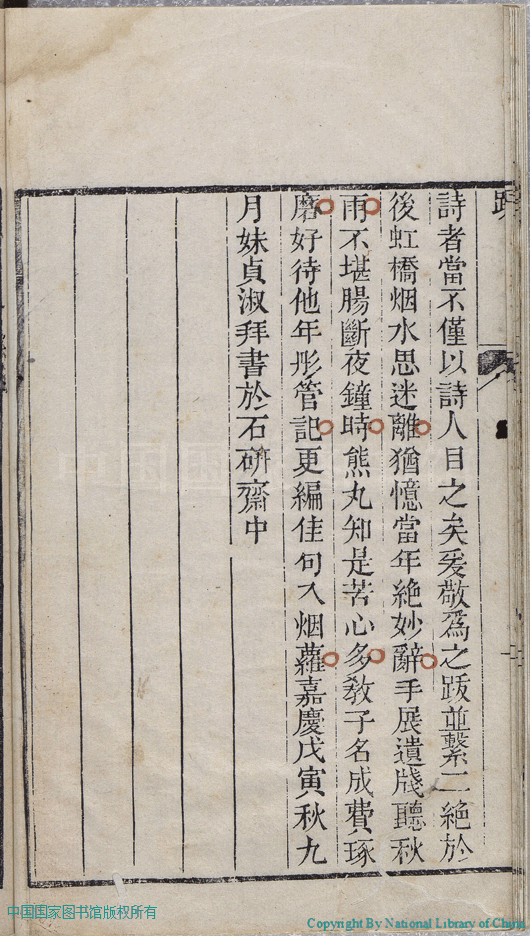 跋
詩者當不僅以詩人目之矣爰敬爲之跋並繫二絕於
後虹橋烟水思迷離猶憶當年絕妙辭手展遺牋聽秋
雨不堪腸斷夜鐘時熊丸知是苦心多敎子名成費琢
磨好待他年彤管記更編佳句入烟蘿嘉慶戊寅秋九
月妹貞淑拜書於石硏齋中
中国国家图书馆版权所有
Copyright By National Library of China